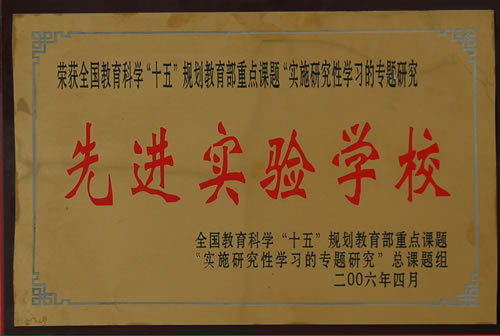 荣获全国教育科学“十五”规划教育部重点课题“实施研究性学习的专题研究
先进实验学校
全国教育科学“十五”规划教育部重点课题
“实施研究性学习的专题研究”总课题组
二00六年四月